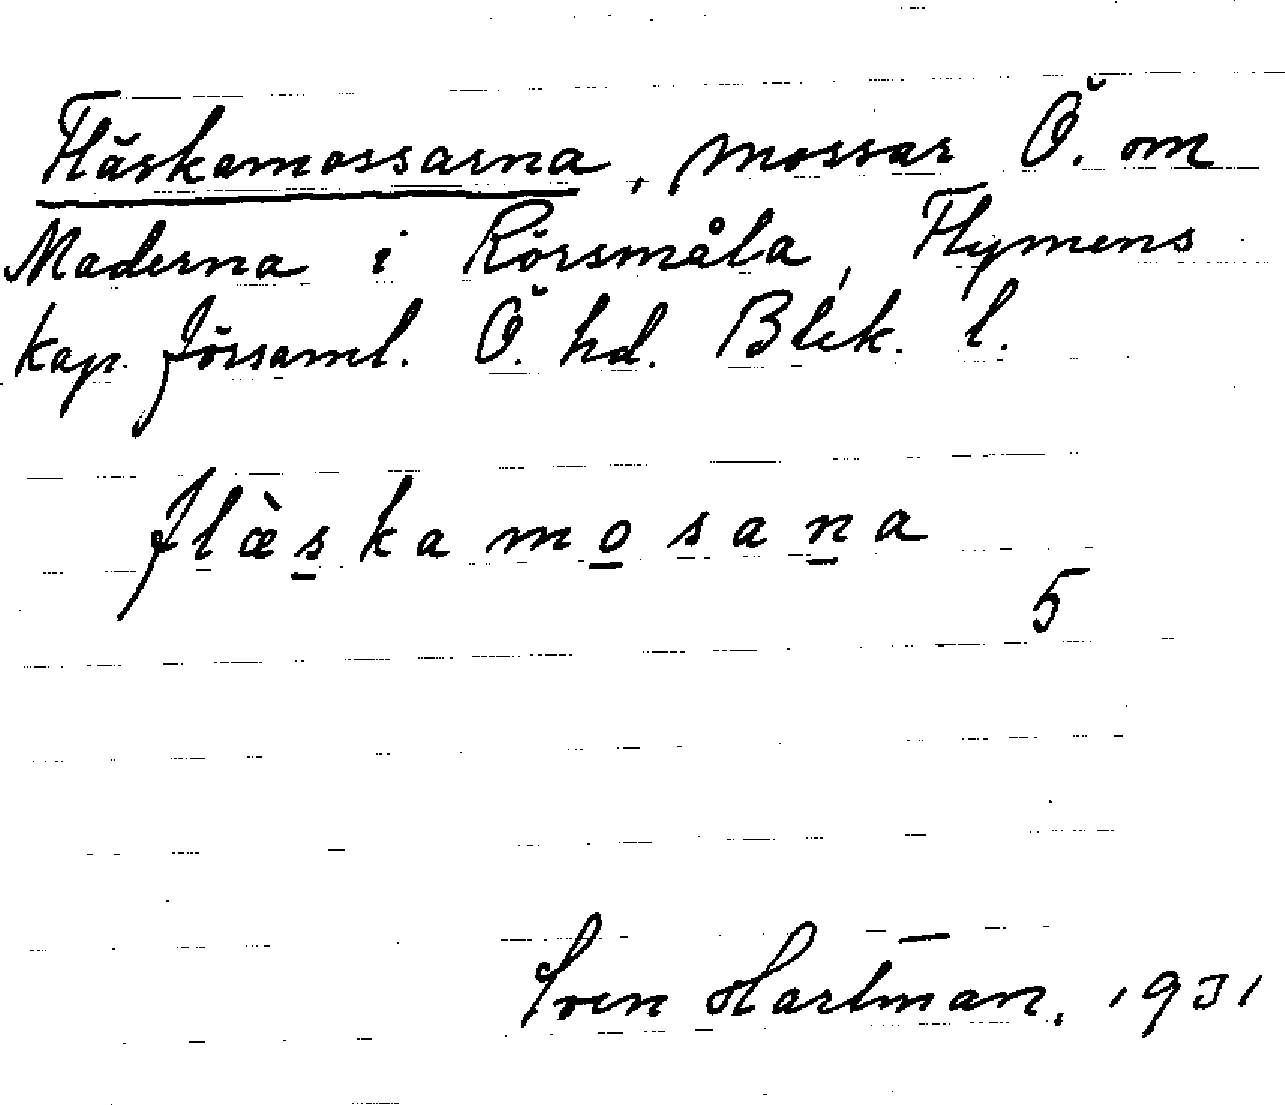 Fläskamossarna, mossar Ö. om
Maderna i Rörsmåla, Flymens
kap. församl. Ö. hd. Blek. l.
flæ̀skamosana
5
Sven Hartman, 1931